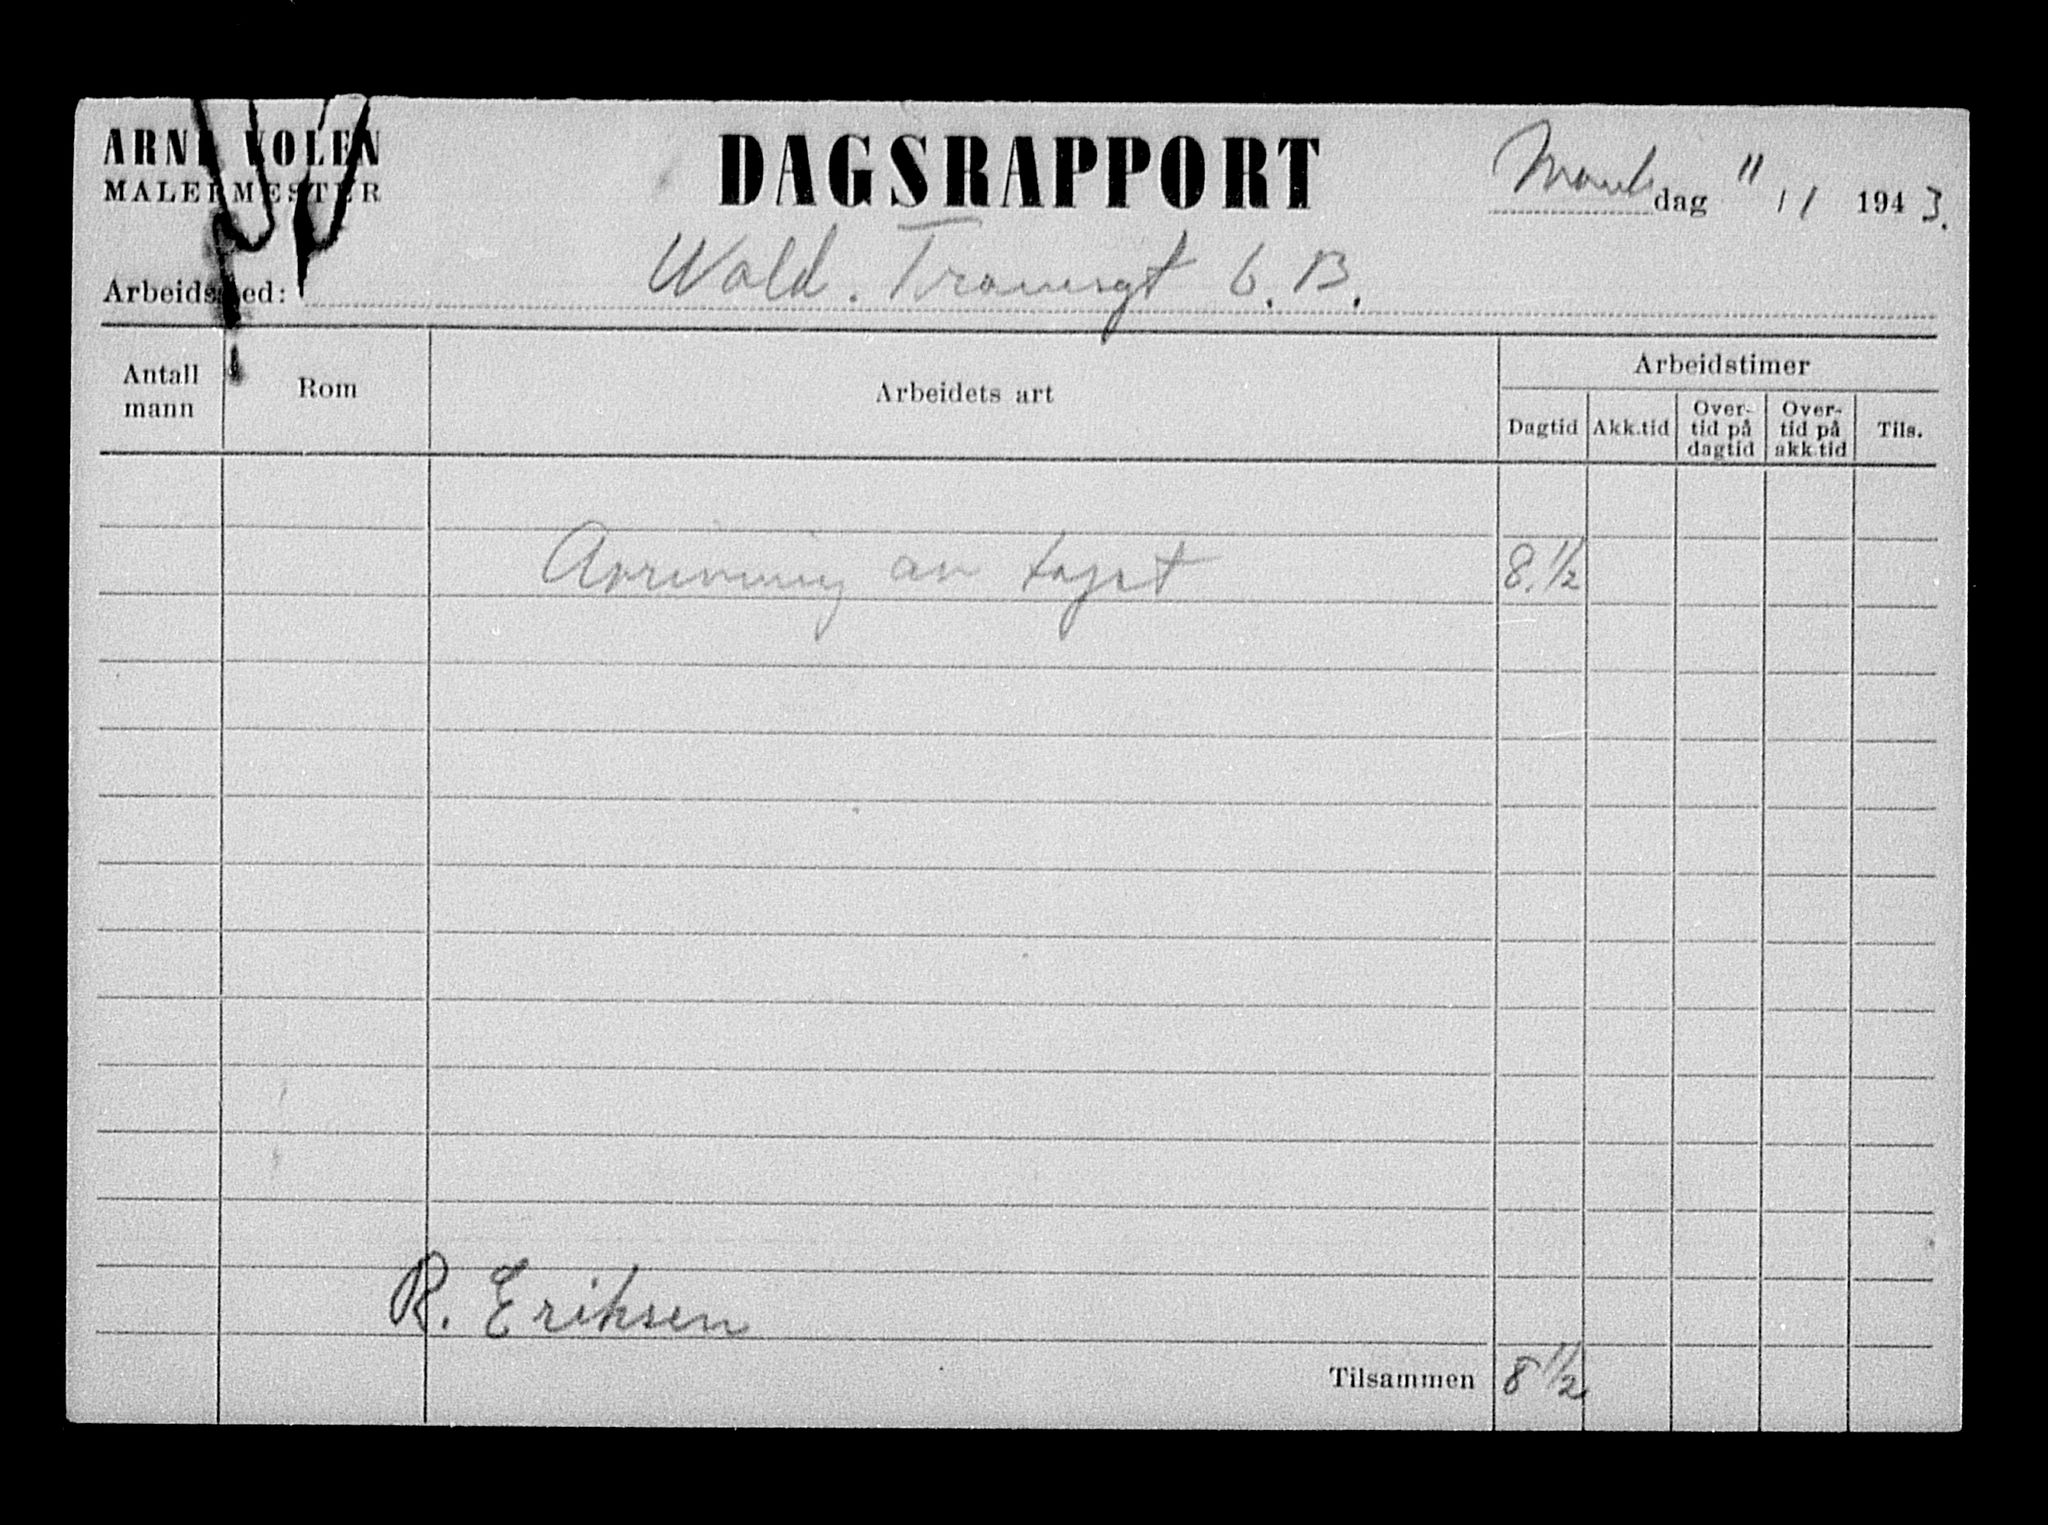 ARNE VOLEN
MALERMESTER
DAGSRAPPORT
Mandag 11/1 1943.
Arbeidssted: Wald. Tranesgt 6. B.
Antall mann
Rom
Arbeidets art
Arbeidstimer
Dagtid
Akk.tid
Over-
tid på
dagtid
Over-
tid på
akk.tid
Tils.
Avrivning av taget 8.1/2
R. Eriksen
Tilsammen 8 1/2